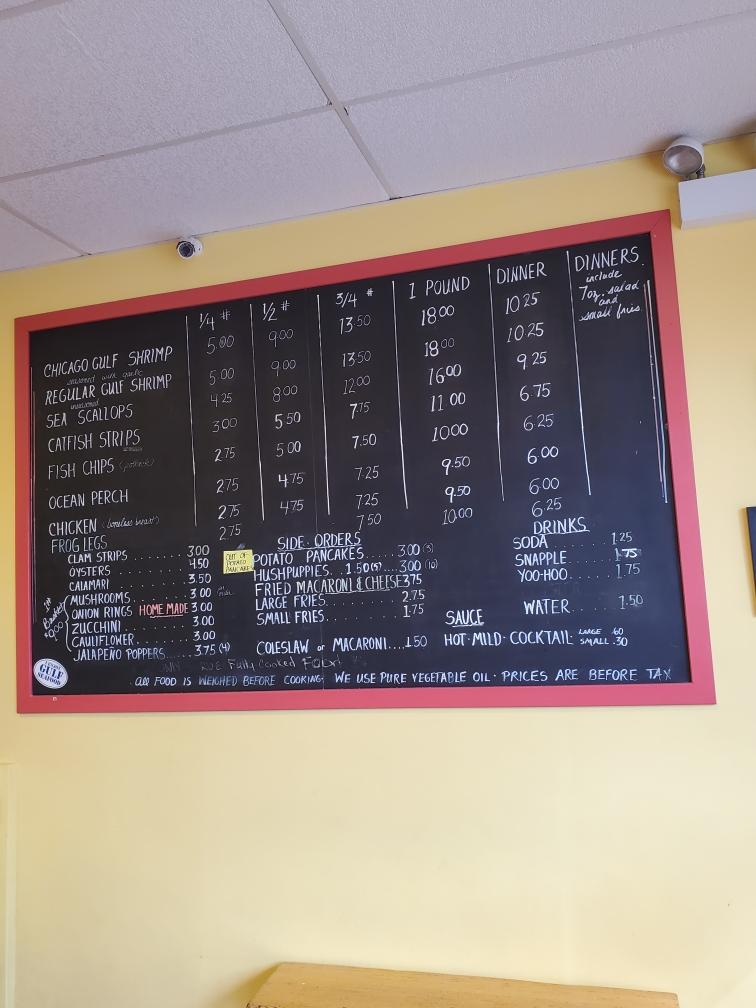 1/4 # 1/2 # 3/4 # 1 POUND DINNER DINNERS
include
7oz. salad
and
small fries
CHICAGO GULF SHRIMP 5.00 9.00 13.50 18.00 10.25
seasoned with garlic
REGULAR GULF SHRIMP 5.00 9.00 13.50 18.00 10.25
SEA SCALLOPS 4.25 8.00 12.00 16.00 9.25
CATFISH STRIPS 3.00 5.50 7.75 11.00 6.75
FISH CHIPS 2.75 5.00 7.50 10.00 6.25
OCEAN PERCH 2.75 4.75 7.25 9.50 6.00
CHICKEN (boneless breast) 2.75 4.75 7.25 9.50 6.00
FROG LEGS 2.75 7.50 10.00 6.25
CLAM STRIPS ....... 3.00
OYSTERS ....... 4.50
CALAMARI 3.50
MUSHROOMS ....... 3.00
ONION RINGS HOME MADE 3.00
ZUCCHINI ....... 3.00
CAULIFLOWER ....... 3.00
JALAPEÑO POPPERS ..... 3.75 (4)
OUT OF
POTATO
PANCAKES
SIDE ORDERS
POTATO PANCAKES...... 3.00 (3)
HUSHPUPPIES.. 1.50 (5).... 3.00 (10)
FRIED MACARONI & CHEESE 3.75
LARGE FRIES ....... 2.75
SMALL FRIES ....... 1.75
COLESLAW or MACARONI.... 1.50
DRINKS
SODA ....... 1.25
SNAPPLE ....... 1.75
YOO-HOO ....... 1.75
WATER ....... 1.50
SAUCE
HOT·MILD·COCKTAIL· LARGE .60
SMALL .30
Fully Cooked Food
GULF
SEAFOOD
ALL FOOD IS WEIGHED BEFORE COOKING· WE USE PURE VEGETABLE OIL · PRICES ARE BEFORE TAX